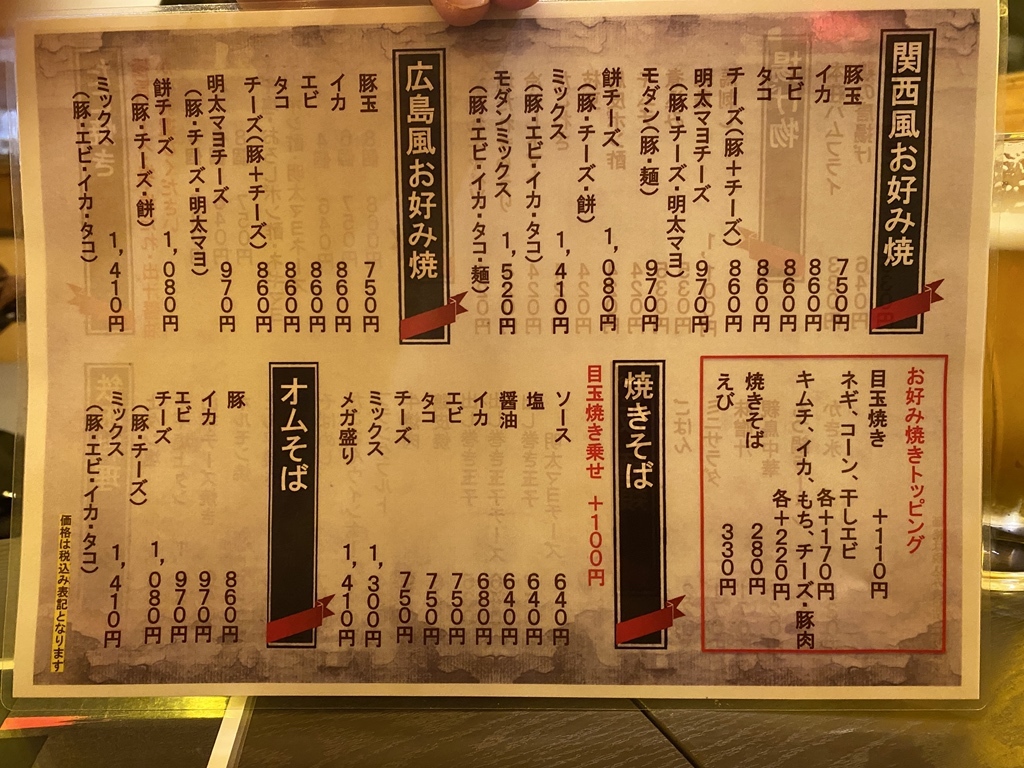 関西風お好み焼
豚玉 750円
イカ 860円
エビ 860円
タコ 860円
チーズ(豚+チーズ) 860円
明太マヨチーズ 970円
(豚・チーズ・明太マヨ)
モダン(豚・麺) 970円
餅チーズ 1,080円
(豚・チーズ・餅)
ミックス 1,410円
(豚・エビ・イカ・タコ)
モダンミックス 1,520円
(豚・エビ・イカ・タコ・麺)
広島風お好み焼
豚玉 750円
イカ 860円
エビ 860円
タコ 860円
チーズ(豚+チーズ) 860円
明太マヨチーズ 970円
(豚・チーズ・明太マヨ)
餅チーズ 1,080円
(豚・チーズ・餅)
ミックス 1,410円
(豚・エビ・イカ・タコ)
お好み焼きトッピング
目玉焼き +110円
ネギ、コーン、干しエビ
各+170円
キムチ、イカ、もち、チーズ・豚肉
各+220円
焼きそば 280円
えび 330円
焼きそば
目玉焼き乗せ +100円
ソース 640円
塩 640円
醤油 640円
イカ 680円
エビ 750円
タコ 750円
チーズ 750円
ミックス 1,300円
メガ盛り 1,410円
オムそば
豚 860円
イカ 970円
エビ 970円
チーズ 1,080円
(豚・チーズ)
ミックス 1,410円
(豚・エビ・イカ・タコ)
価格は税込み表記となります